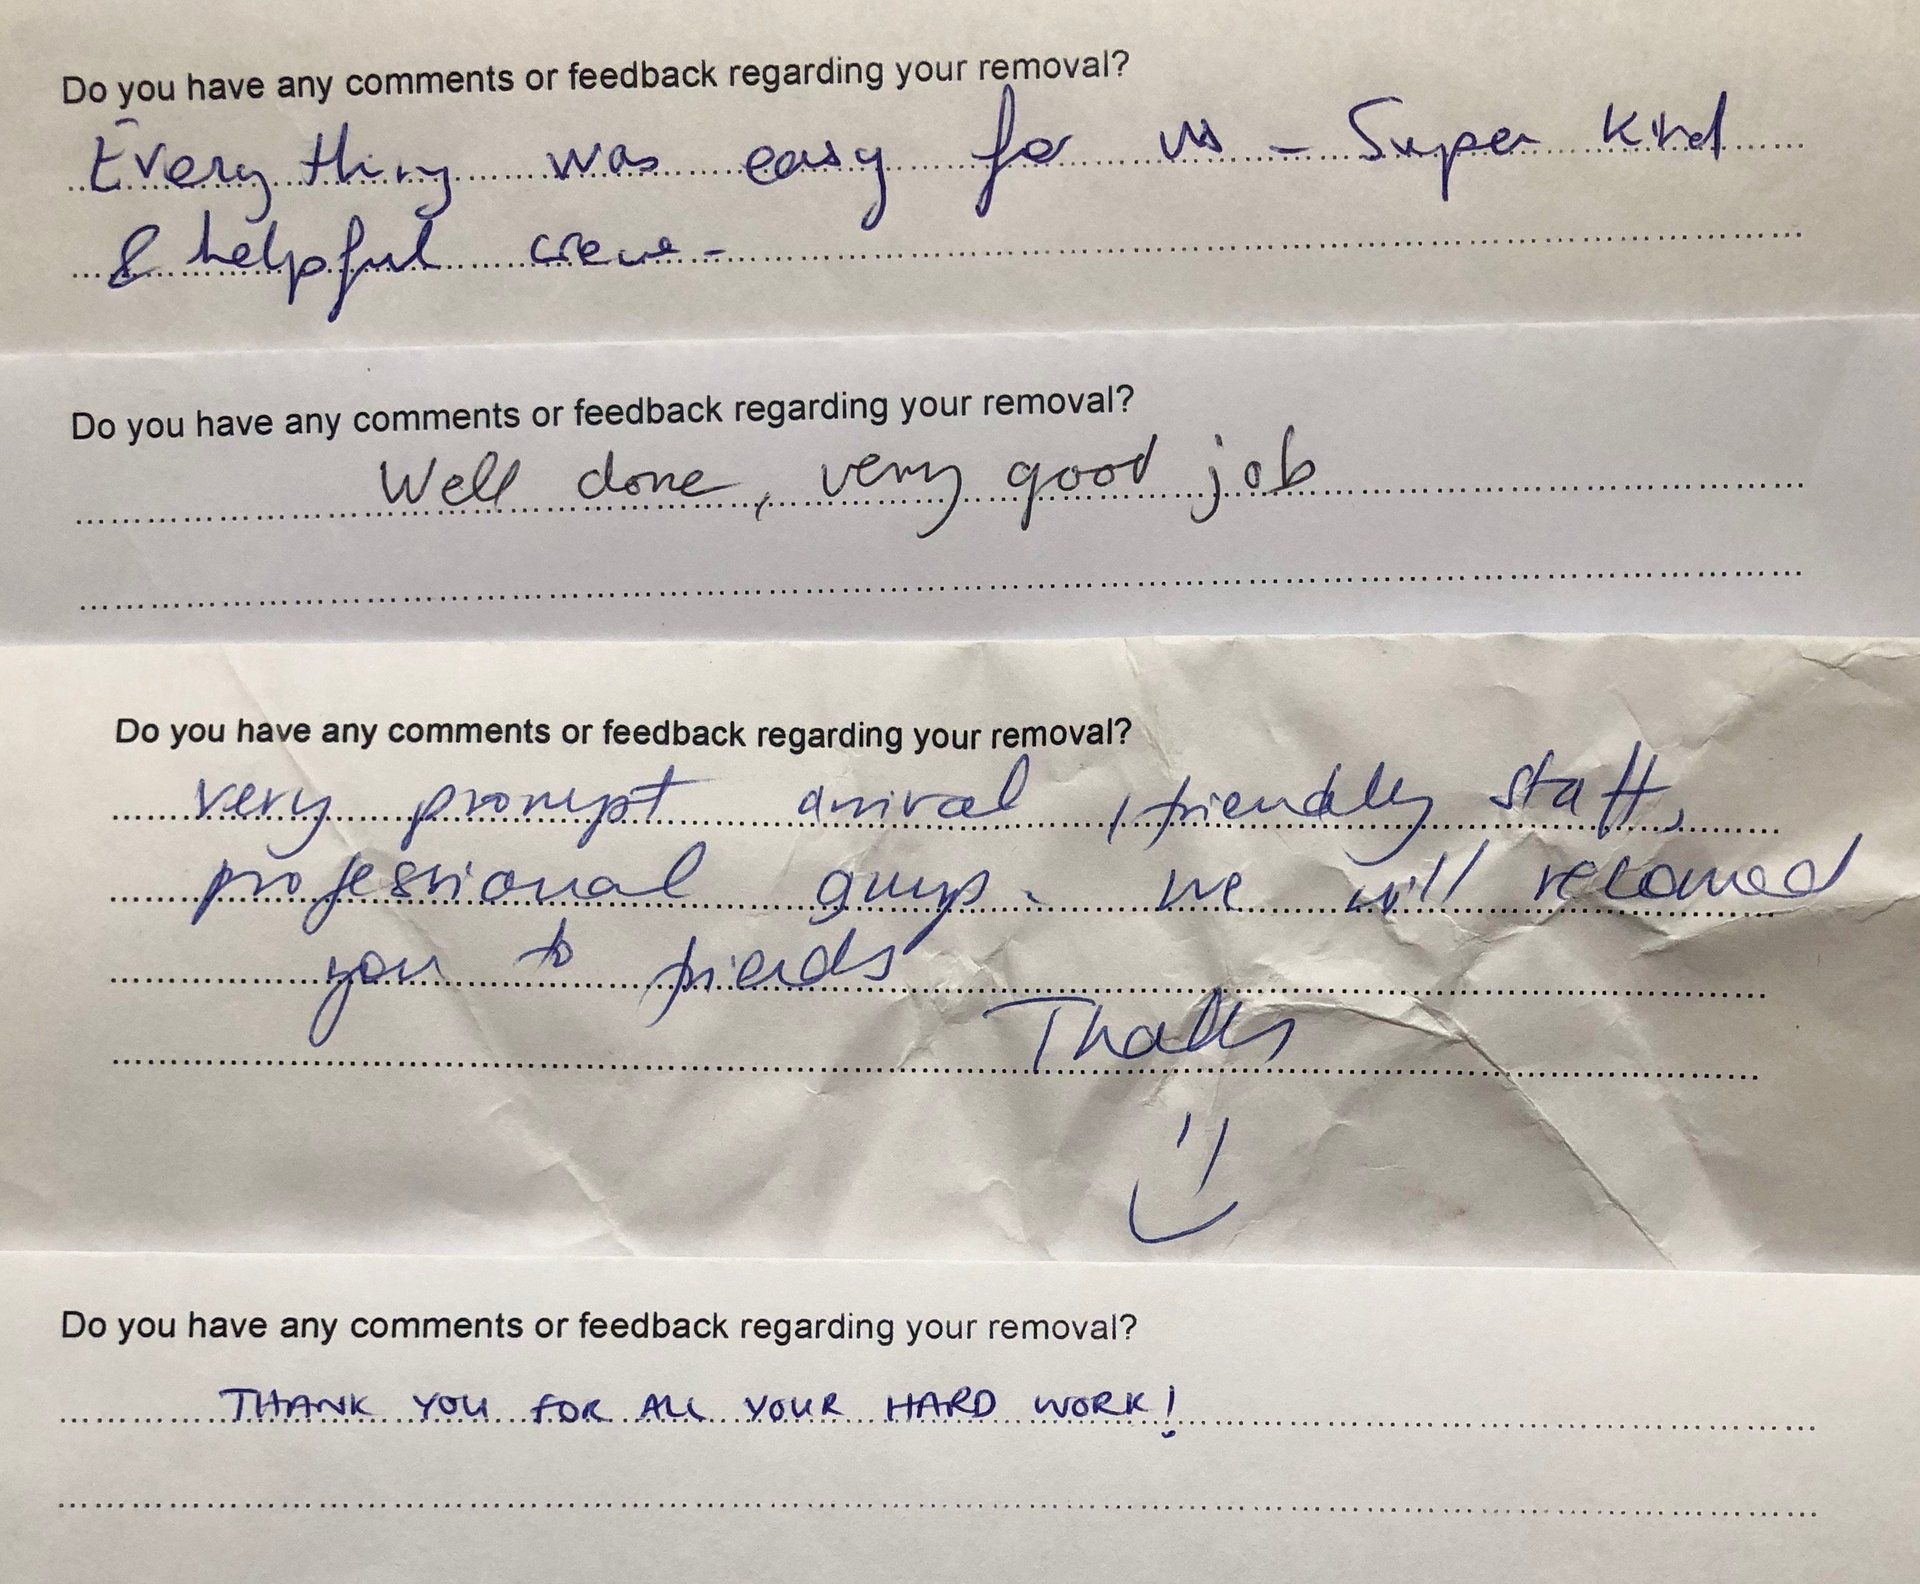 Do you have any comments or feedback regarding your removal?
Everything was easy for us - Super kind
& helpful crew -
Do you have any comments or feedback regarding your removal?
Well done, very good job
Do you have any comments or feedback regarding your removal?
very prompt arrival, friendly staff,
professional guys. we will recomed
you to friends
Thanks
Do you have any comments or feedback regarding your removal?
THANK YOU FOR ALL YOUR HARD WORK!